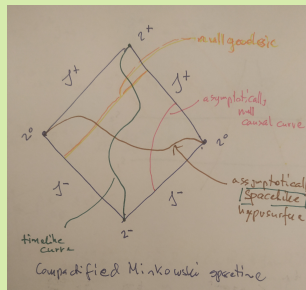 i+
null geodesic
J+
J+
asymptotically
null
causal curve
i0
i0
J-
J-
assymptotically
spacelike
hypersurface
i-
timelike
curve
Compactified Minkowski spacetime